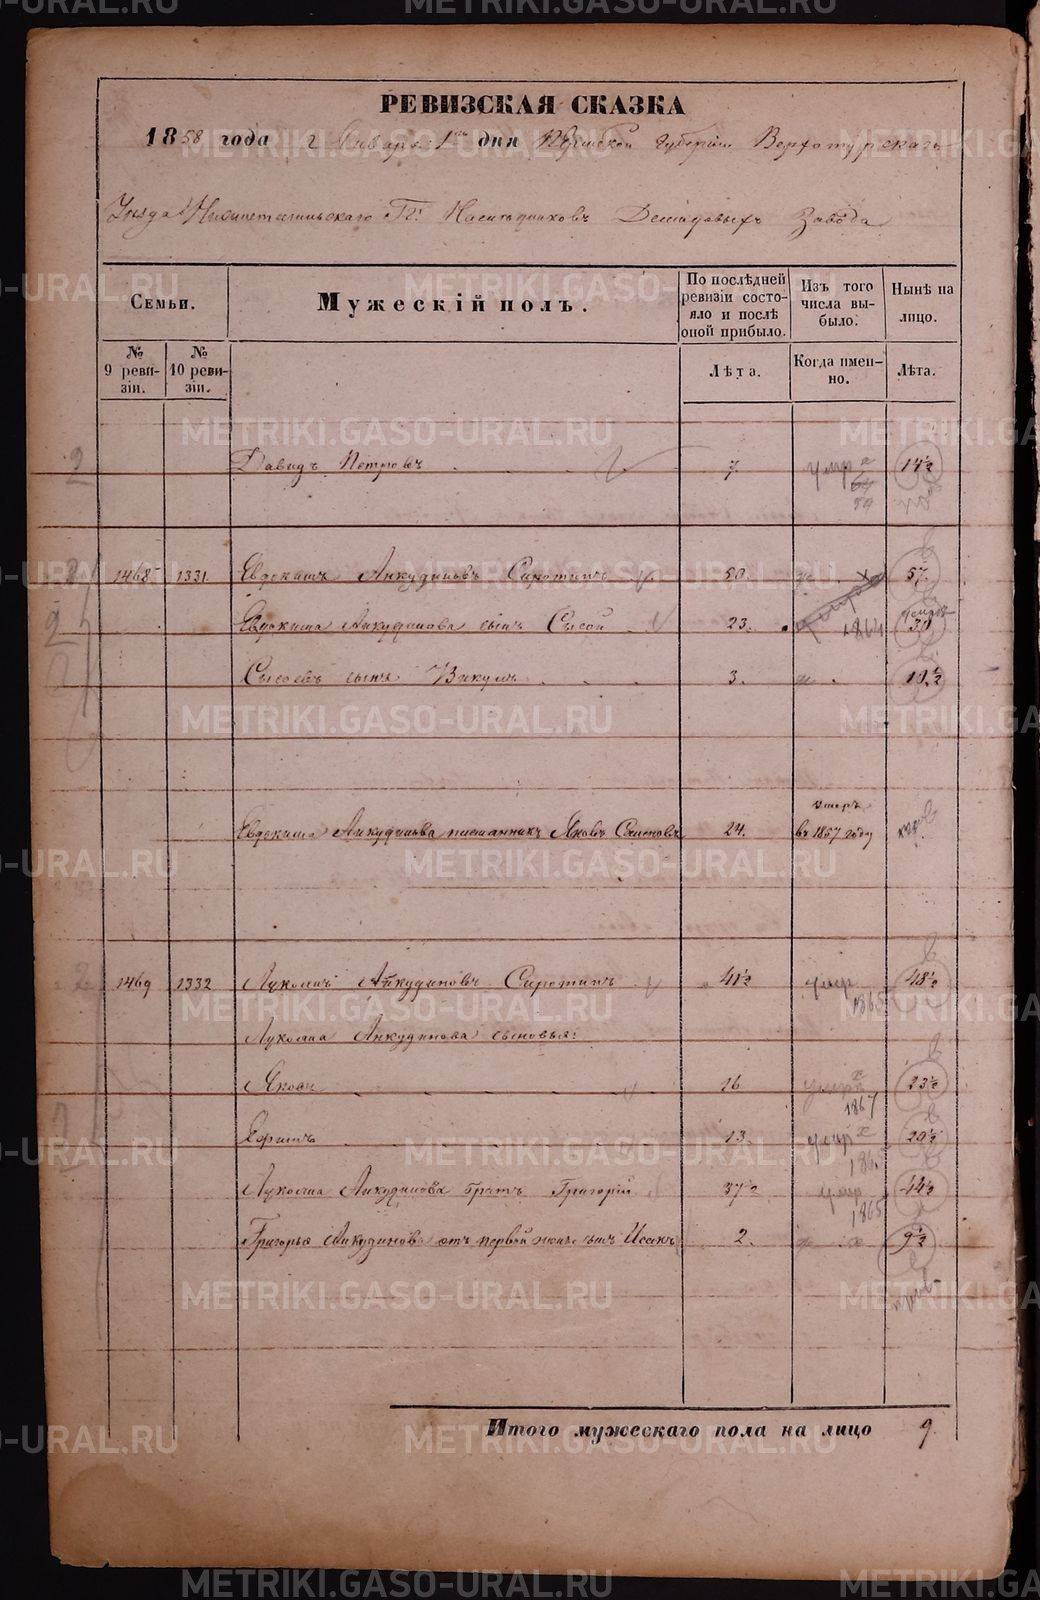 РЕВИЗСКАЯ СКАЗКА
1858 года Января 1го дня Пермской Губернiи Верхотурскаго
Уѣзда Нижнетагильскаго Гг. Наслѣдниковъ Демидовыхъ Завода
Семьи.
Мужескiй полъ.
По послѣдней ревизiи состояло и послѣ оной прибыло.
Изъ того числа выбыло.
Нынѣ на лицо.
№ 9 ревизiи.
№ 10 ревизiи.
Лѣта.
Когда именно.
Лѣта.
2 Давидъ Петровъ 7. умр 14½
1468 1331 Евдокимъ Анкудиновъ Сиротинъ 50. 57.
Евдокима Анкудинова сынъ Сысой 23. 1864 30
Сысоевъ сынъ Викулъ 3. 10½
Евдокима Анкудинова племянникъ Яковъ Семеновъ 24. умеръ въ 1857 году
1469 1332 Лукоянъ Анкудиновъ Сиротинъ 41½ умр 1865 48½
Лукояна Анкудинова сыновья:
Яковъ 16 умр 1867 23½
Ефимъ 13. умр 20½
Лукояна Анкудинова братъ Григорiй 37½ умр 1865 44½
Григорья Анкудинова отъ первой жены сынъ Исакъ 2. 9½
Итого мужескаго пола на лицо 9.
METRIKI.GASO-URAL.RU